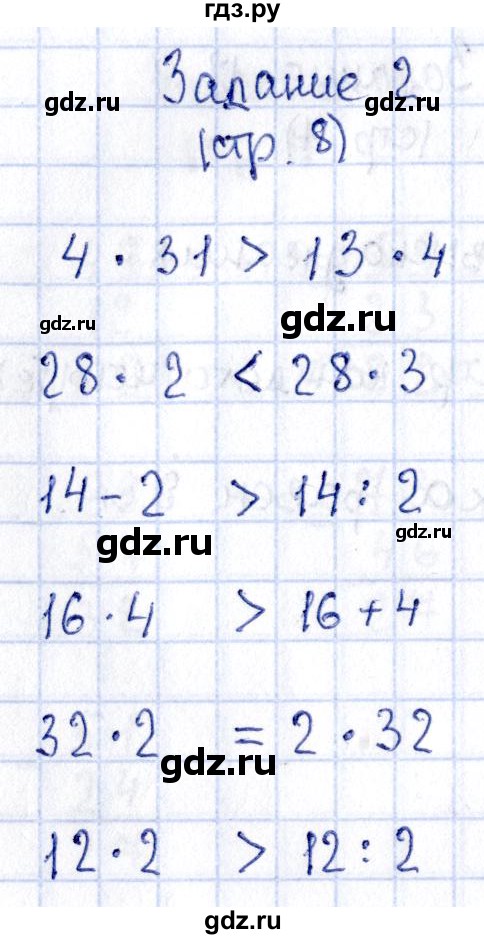 гдз.ру
Задание 2
gdz.ru gdz.ru
(стр. 8)
4 · 31 > 13 · 4
gdz.ru gdz.ru
28 · 2 < 28 · 3
14 - 2 > 14 : 2
gdz.ru gdz.ru
16 · 4 > 16 + 4
32 · 2 = 2 · 32
gdz.ru
12 · 2 > 12 : 2
gdz.ru